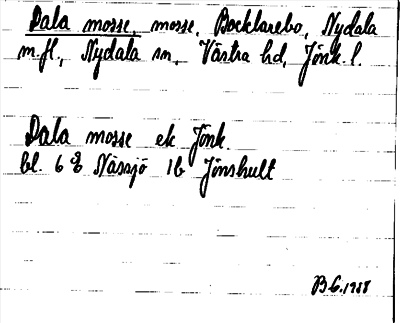 Dala mosse, mosse, Bocklarebo, Nydala
m.fl., Nydala sn, Västra hd, Jönk. l.
Dala mosse ek Jönk.
bl. 6 E Nässjö 1b Jönshult
B.G. 1988